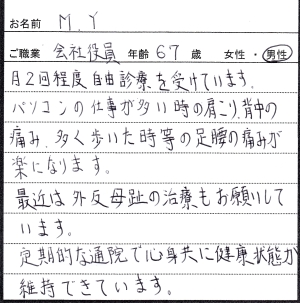 お名前 M.Y
ご職業 会社役員 年齢 67 歳 女性・男性
月2回程度自由診療を受けています。
パソコンの仕事が多い時の肩こり、背中の
痛み、多く歩いた時等の足腰の痛みが
楽になります。
最近は外反母趾の治療もお願いして
います。
定期的な通院で心身共に健康状態が
維持できています。